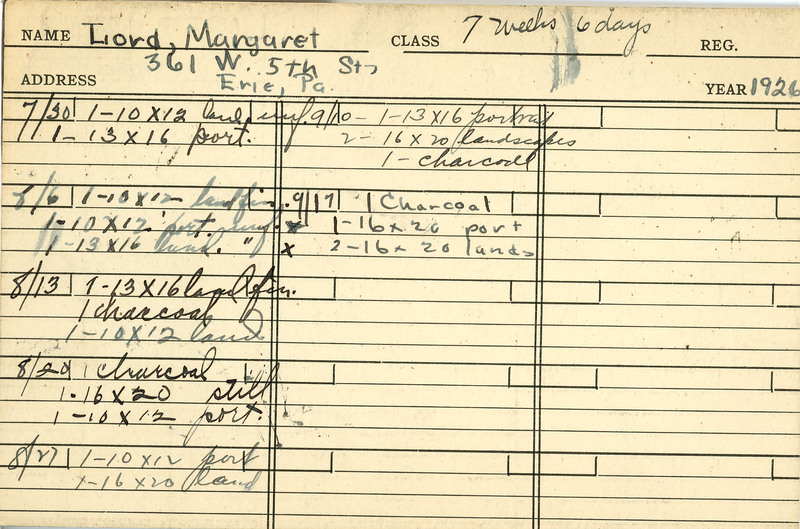 NAME Lord, Margaret CLASS 7 weeks 6 days REG.
361 W. 5th St.,
ADDRESS Erie, Pa. YEAR 1926
7/30 1-10 X 12 land, unf
1- 13 X 16 port.
8/6 1-10 X 12 land fin.
1-10 X 12 port. unf.
1-13 X 16 land. "
8/13 1-13 X 16 land fin.
1 charcoal
1-10 X 12 land
8/20 1 charcoal
1-16 X 20 still
1-10 X 12 port.
8/27 1-10 X 12 port
1-16 X 20 land
9/10- 1-13 X 16 portrait
2- 16 X 20 landscapes
1- charcoal
9/17 1 Charcoal
x 1-16 x 20 port
x 2-16 x 20 lands